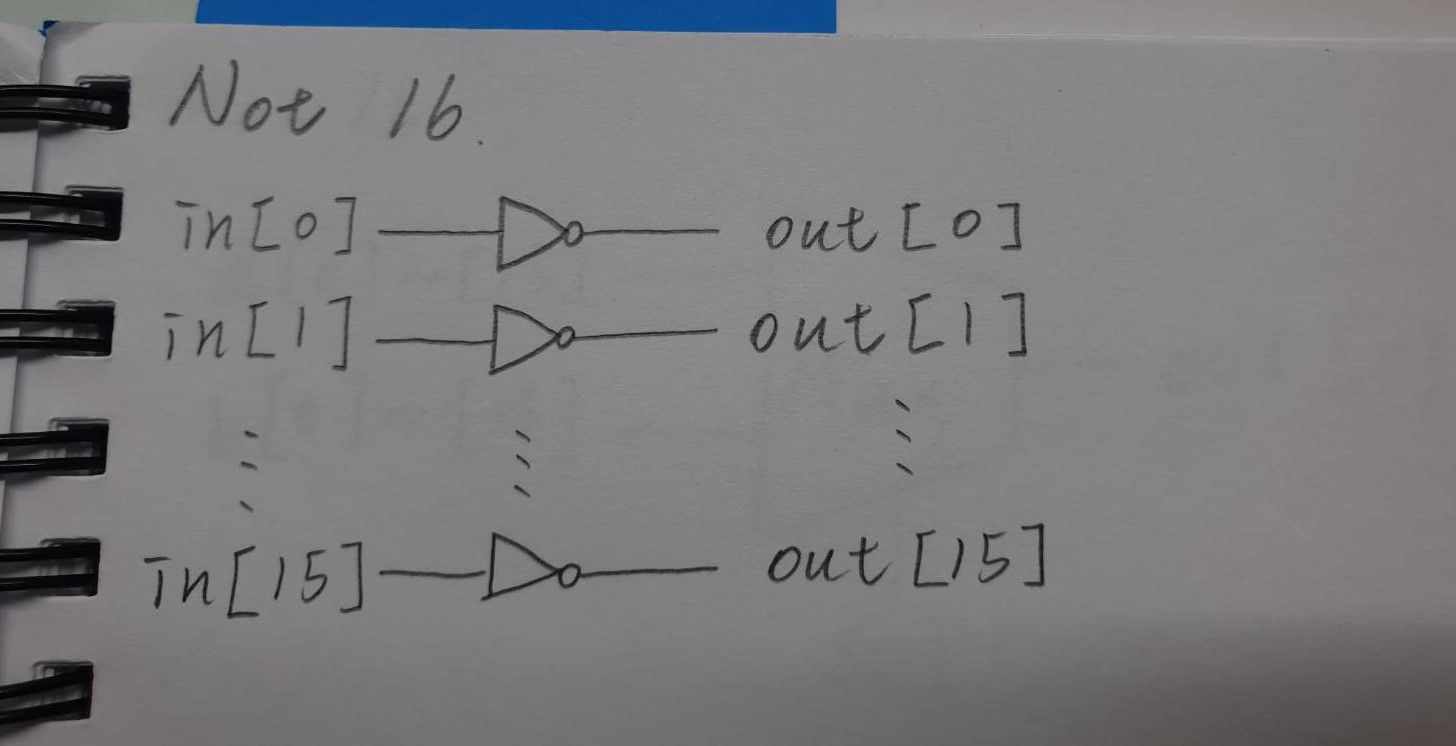 Not 16.
in[0] out[0]
in[1] out[1]
in[15] out[15]